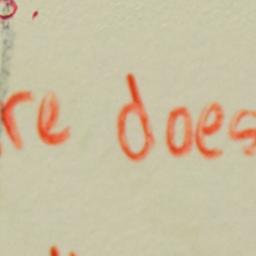 re does